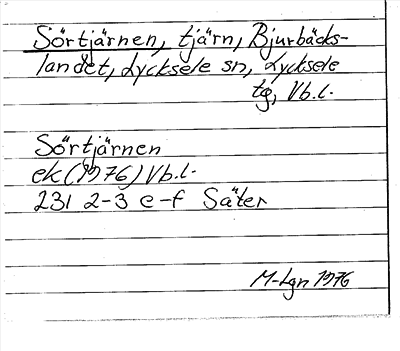 Sörtjärnen, tjärn, Bjurbäcks-
landet, Lycksele sn, Lycksele
tg, Vb.l.
Sörtjärnen
ek (1976) Vb.l.
231 2-3 e-f Säter
M-Lgn 1976